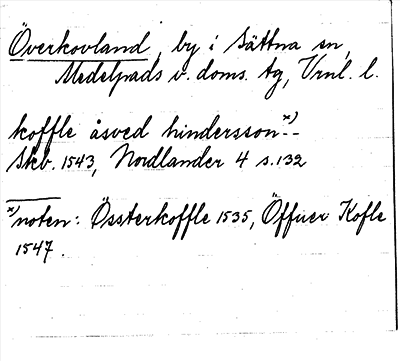 Överkovland, by i Sättna sn,
Medelpads v. doms. tg, Vrnl. l.
koffle åsved hindersson x) - -
Skb. 1543, Nordlander 4 s. 132
x) noten: Össterkoffle 1535, Öffuer Kofle
1547.